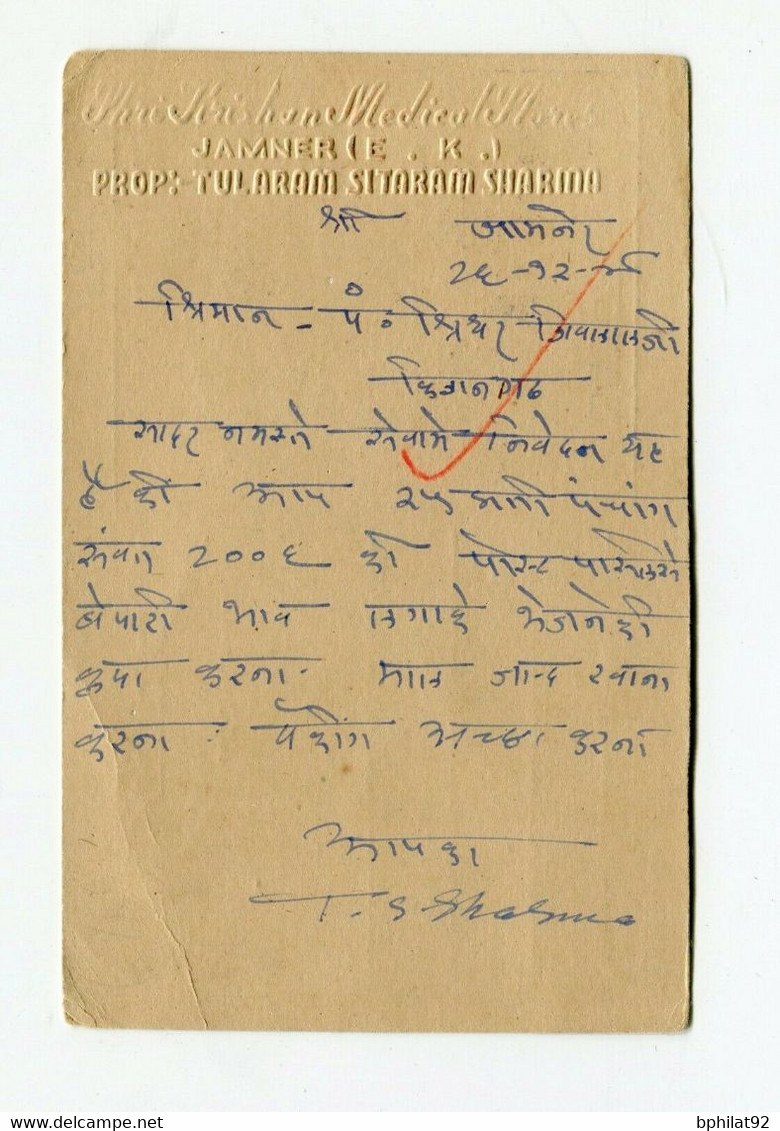 Shri Krishan Medical Stores
JAMNER (E. K.)
PROP:- TULARAM SITARAM SHARMA
श्री जामनेर
२६-१२-४८
श्रिमान - पं० श्रिधर शिवलालजी
किशनगढ
सादर नमस्ते सेवामे निवेदन यह
है की आप २५ प्रती पंचांग
संवत २००६ की पोस्ट पार्सलसे
बेपारी भाव लगाके भेजनेकी
कृपा करना. माल जल्द रवाना
करना. पॅकींग अच्छा करना
आपका
T. S Sharma
bphilat92